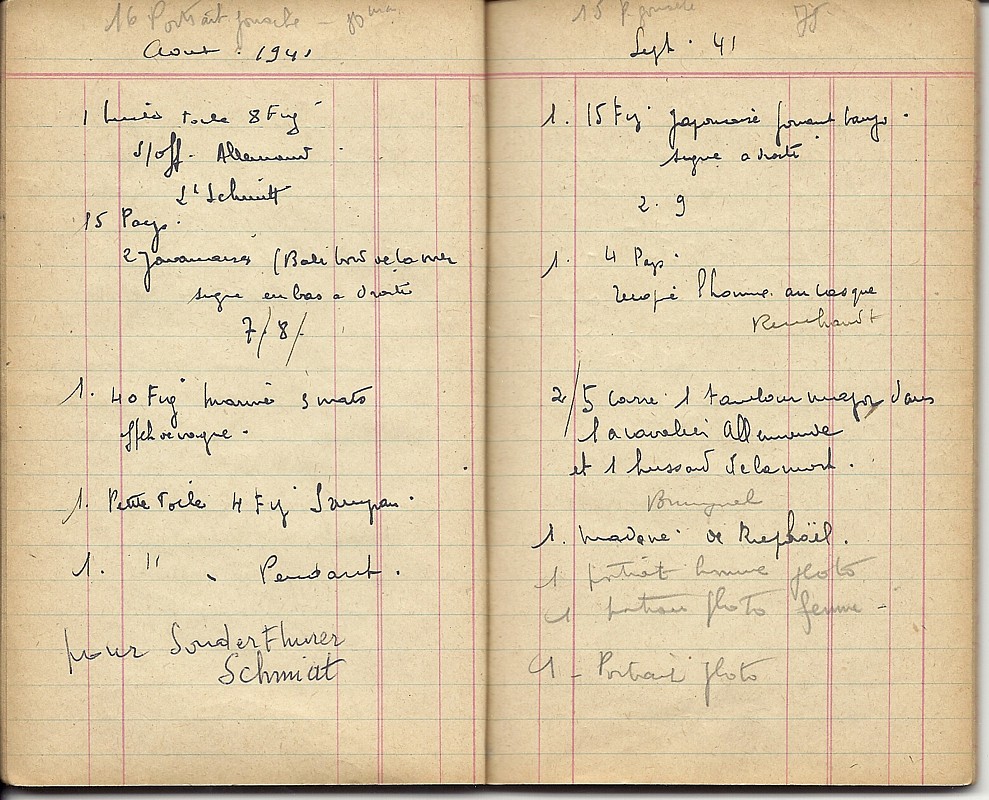 16 Portrait gouache -
Aout. 1941
1 toile 8 Fig
s/off. Allemand
Lt Schmitt
15 Pays.
2 Javanaises (Bali bord de la mer
signé en bas a droite
7/8/
1. 40 Fig marine 3 mats
1. Petite toile 4 Fig Sampan.
1. " Pendant.
pour Sonderfhurer
Schmidt
15 P gouache
Sept. 41
1. 15 Fig Japonaise jouant banjo.
signé a droite
2. 9
1. 4 Pays.
l'homme au casque
Rembrandt
2/5 carre 1 tambour major dans
la cavalerie Allemande
et 1 hussard de la mort.
1. madone de Raphaël.
1 portrait homme photo
1 portrait photo femme -
1 - Portrait photo